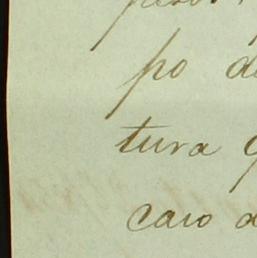 po d
tura q
caio d